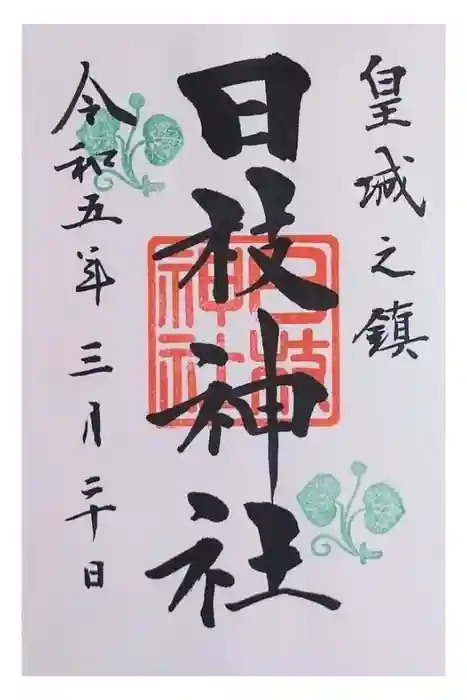 皇城之鎮
日枝神社
日枝神社
令和五年三月二十日